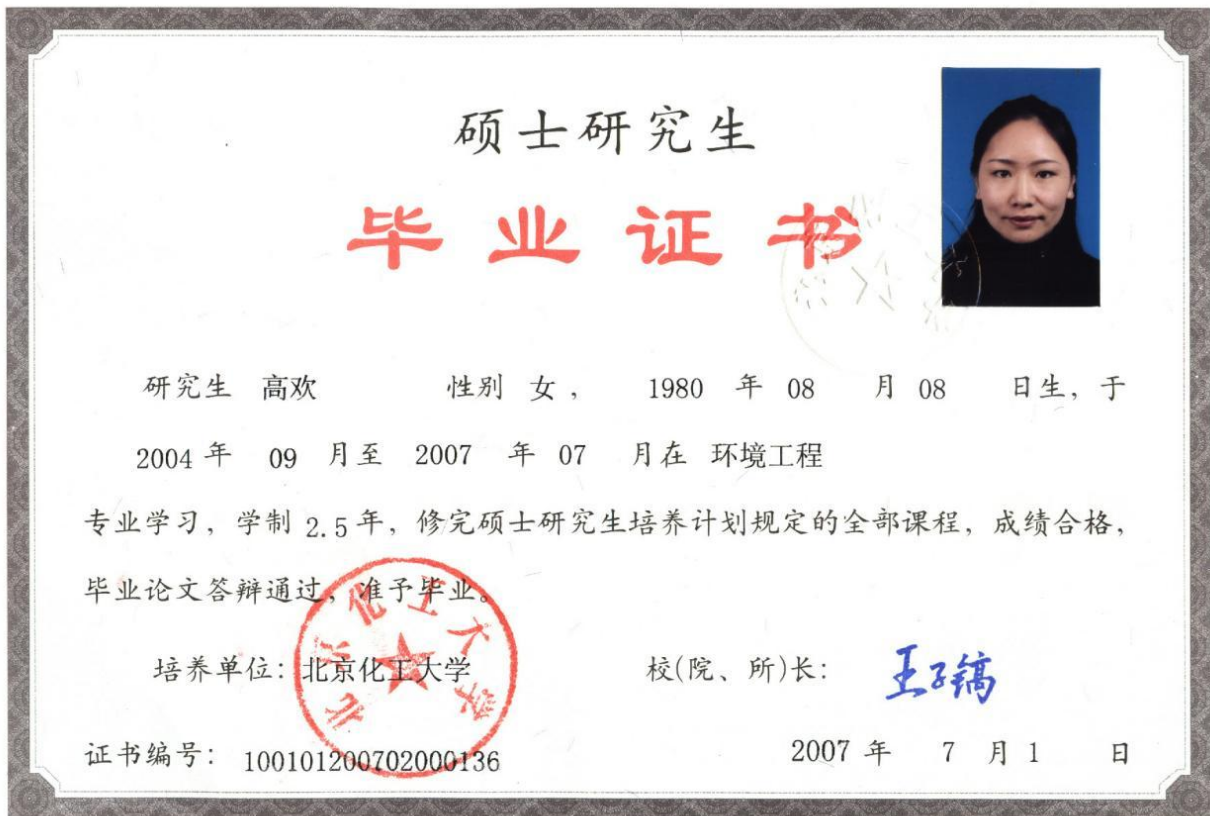 硕士研究生
毕业证书
研究生 高欢 性别 女， 1980 年 08 月 08 日生，于
2004 年 09 月至 2007 年 07 月在 环境工程
专业学习，学制 2.5 年，修完硕士研究生培养计划规定的全部课程，成绩合格，
毕业论文答辩通过，准予毕业。
北京化工大学
培养单位：北京化工大学 校(院、所)长： 王子镐
证书编号： 100101200702000136 2007 年 7 月 1 日